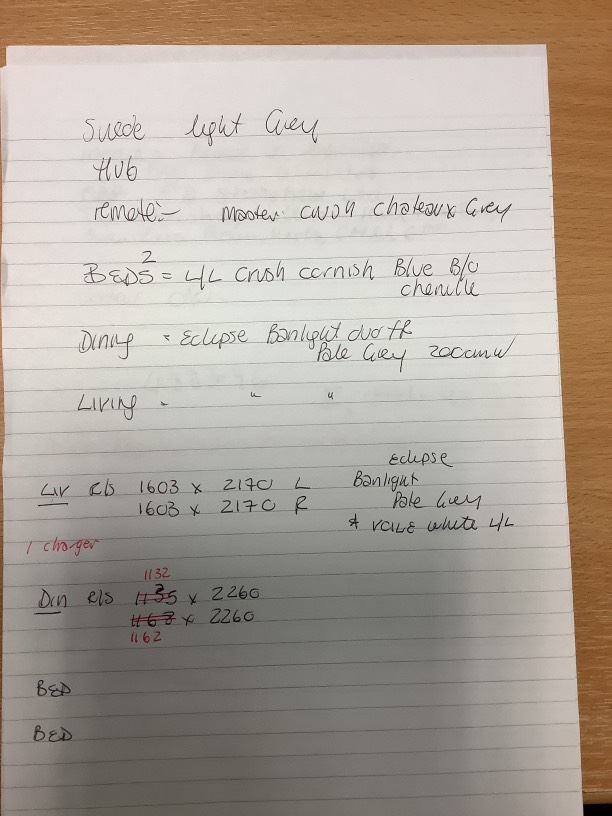 Suede light Grey
HUB
remote:- Master crush chateaux Grey
BEDS 2 = U/L Crush cornish Blue B/O
chenille
Dining = Eclipse Banlight duo FR
Pale Grey 200cmW
Living = " "
Eclipse
Liv R/S 1603 x 2170 L Banlight
1603 x 2170 R Pale Grey
& VOILE white U/L
1 charger
1132
Din R/S 1135 x 2260
1163 x 2260
1162
BED
BED